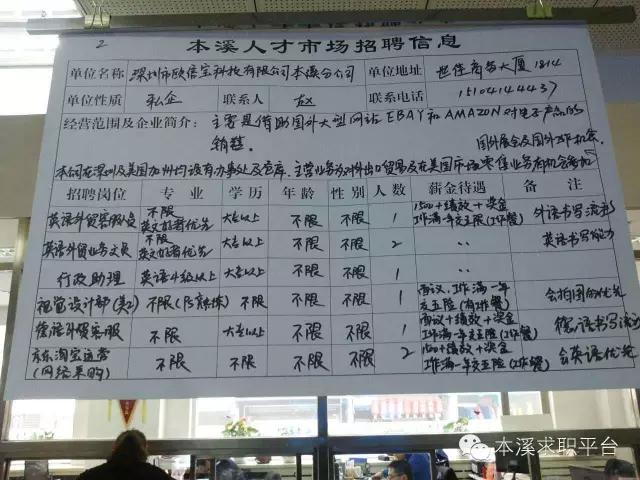 2
本溪人才市场招聘信息
单位名称 深圳市欧信宝科技有限公司本溪分公司 单位地址 世佳商务大厦1814
单位性质 私企 联系人 赵 联系电话 15104144437
经营范围及企业简介: 主要是借助国外大型网站EBAY和AMAZON对电子产品的
销售。 国外展会及国外工作机会.
本公司在深圳及美国加州均设有办事处及仓库. 主要业务为对外出口贸易及在美国市场零售业务有机会参加
招聘岗位 专业 学历 年龄 性别 人数 薪金待遇 备注
英语外贸客服员 不限 英文好者优先 大专以上 不限 不限 1 1500+绩效+奖金 工作满一年交五险(工作餐) 外语书写流利
英语外贸业务文员 不限 英文好者优先 大专以上 不限 不限 2 〃 英语书写能力
行政助理 英语4级以上 大专以上 不限 不限 1 〃
视觉设计部(美工) 不限(PS熟练) 不限 不限 不限 1 面议,工作满一年 交五险(有排餐) 会拍图的优先
德语外贸客服 不限 大专以上 不限 不限 1 面议+绩效+奖金 工作满一年交五险(工作餐) 德语书写流利
京东淘宝运营 (网络采购) 不限 不限 不限 不限 2 1500+绩效+奖金 工作满一年交五险(工作餐) 会英语优先
本溪求职平台